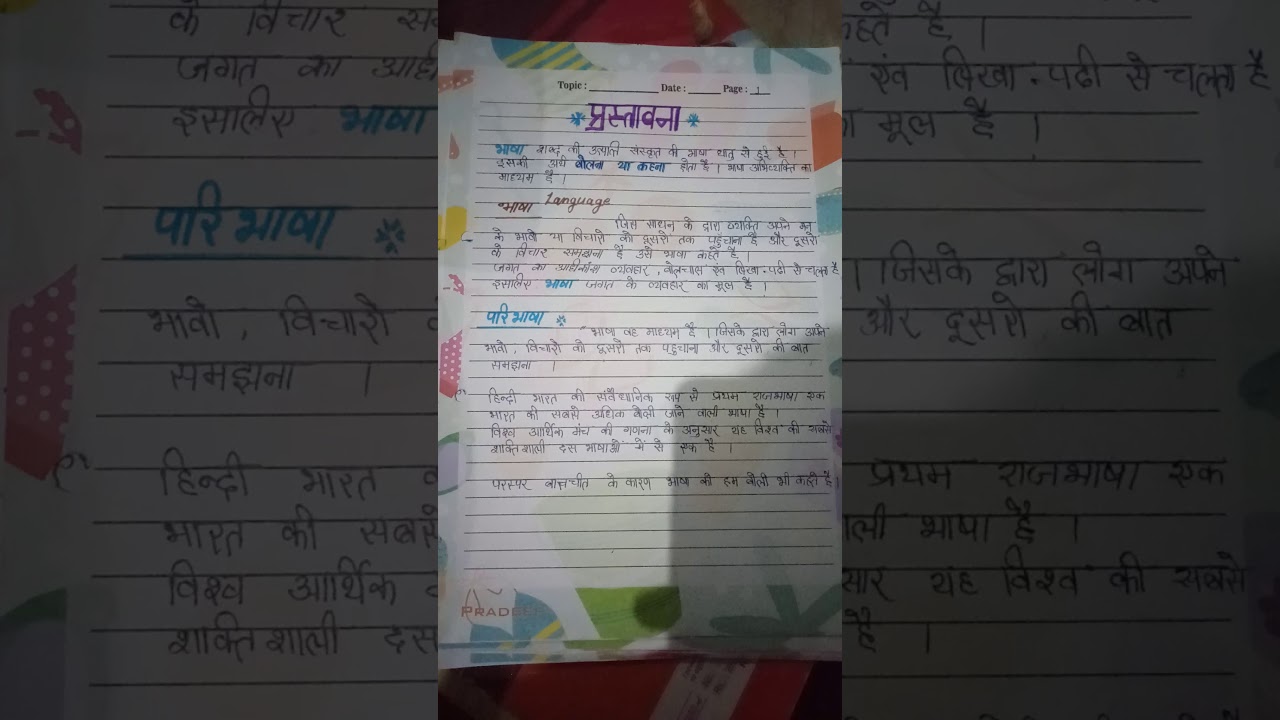 Topic : Date : Page : 1
प्रस्तावना
भाषा शब्द की उत्पत्ति संस्कृत की भाषा धातु से हुई है ।
इसका अर्थ बोलना या कहना होता है । भाषा अभिव्यक्ति का
माध्यम है ।
भाषा Language
जिस साधन के द्वारा व्यक्ति अपने मन
के भावो या विचारो को दूसरो तक पहुंचाना है और दूसरो
के विचार समझना है उसे भाषा कहते है ।
जगत का व्यवहार , बोलचाल एंव लिखा-पढी से चलता है
इसालिए भाषा जगत के व्यवहार का मूल है ।
परिभाषा
भाषा वह माध्यम है । जिसके द्वारा लोग अपने
भावो , विचारो को दूसरो तक पहुचाना और दूसरो की बात
समझना ।
हिन्दी भारत की संवैधानिक रूप से प्रथम राजभाषा एक
भारत की सबसे अधिक बोली जाने वाली भाषा है ।
विश्व आर्थिक मंच की गणना के अनुसार यह विश्व की सबसे
शक्तिशाली दस भाषाओं में से एक है ।
परस्पर बातचीत के कारण भाषा को हम बोली भी कहते है
PRADEE